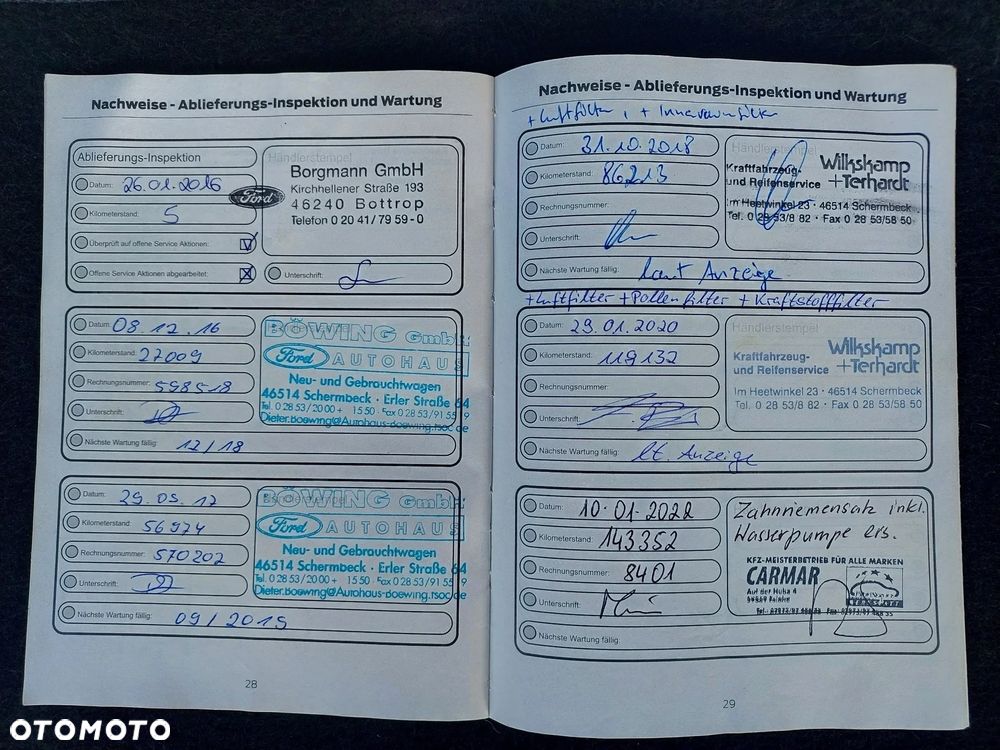 Nachweise - Ablieferungs-Inspektion und Wartung
Ablieferungs-Inspektion
Datum: 26.01.2016
Kilometerstand: 5
Überprüft auf offene Service Aktionen:
Offene Service Aktionen abgearbeitet:
Händlerstempel
Borgmann GmbH
Kirchhellener Straße 193
46240 Bottrop
Telefon 0 20 41/79 59-0
Ford
Unterschrift:
Datum: 08.12.16
Kilometerstand: 27009
Rechnungsnummer: 598518
Unterschrift:
Nächste Wartung fällig: 12/18
BÖWING GmbH
Ford AUTOHAUS
Neu- und Gebrauchtwagen
46514 Schermbeck · Erler Straße 64
Tel. 0 28 53/20 00 + 15 50 · Fax 0 28 53/91 55 9
Dieter.Boewing@Autohaus-Boewing.fsoc.de
Datum: 29.09.17
Kilometerstand: 56974
Rechnungsnummer: 570202
Unterschrift:
Nächste Wartung fällig: 09/2019
BÖWING GmbH
Ford AUTOHAUS
Neu- und Gebrauchtwagen
46514 Schermbeck · Erler Straße 64
Tel. 0 28 53/20 00 + 15 50 · Fax 0 28 53/91 55 9
Dieter.Boewing@Autohaus-Boewing.fsoc.de
28
Nachweise - Ablieferungs-Inspektion und Wartung
+ Luftfilter, + Innenraumfilter
Datum: 31.10.2018
Kilometerstand: 86213
Rechnungsnummer:
Unterschrift:
Nächste Wartung fällig: laut Anzeige
Händlerstempel
Kraftfahrzeug- und Reifenservice
Wilkskamp + Terhardt
Im Heetwinkel 23 · 46514 Schermbeck
Tel. 0 28 53/8 82 · Fax 0 28 53/58 50
+Luftfilter +Pollenfilter + Kraftstofffilter
Datum: 29.01.2020
Kilometerstand: 119132
Rechnungsnummer:
Unterschrift:
Nächste Wartung fällig: lt. Anzeige
Händlerstempel
Kraftfahrzeug- und Reifenservice
Wilkskamp + Terhardt
Im Heetwinkel 23 · 46514 Schermbeck
Tel. 0 28 53/8 82 · Fax 0 28 53/58 50
Datum: 10.01.2022
Kilometerstand: 143352
Rechnungsnummer: 8401
Unterschrift:
Nächste Wartung fällig:
Zahnriemensatz inkl.
Wasserpumpe ers.
KFZ-MEISTERBETRIEB FÜR ALLE MARKEN
CARMAR
Auf der Huka 4
29
OTOMOTO